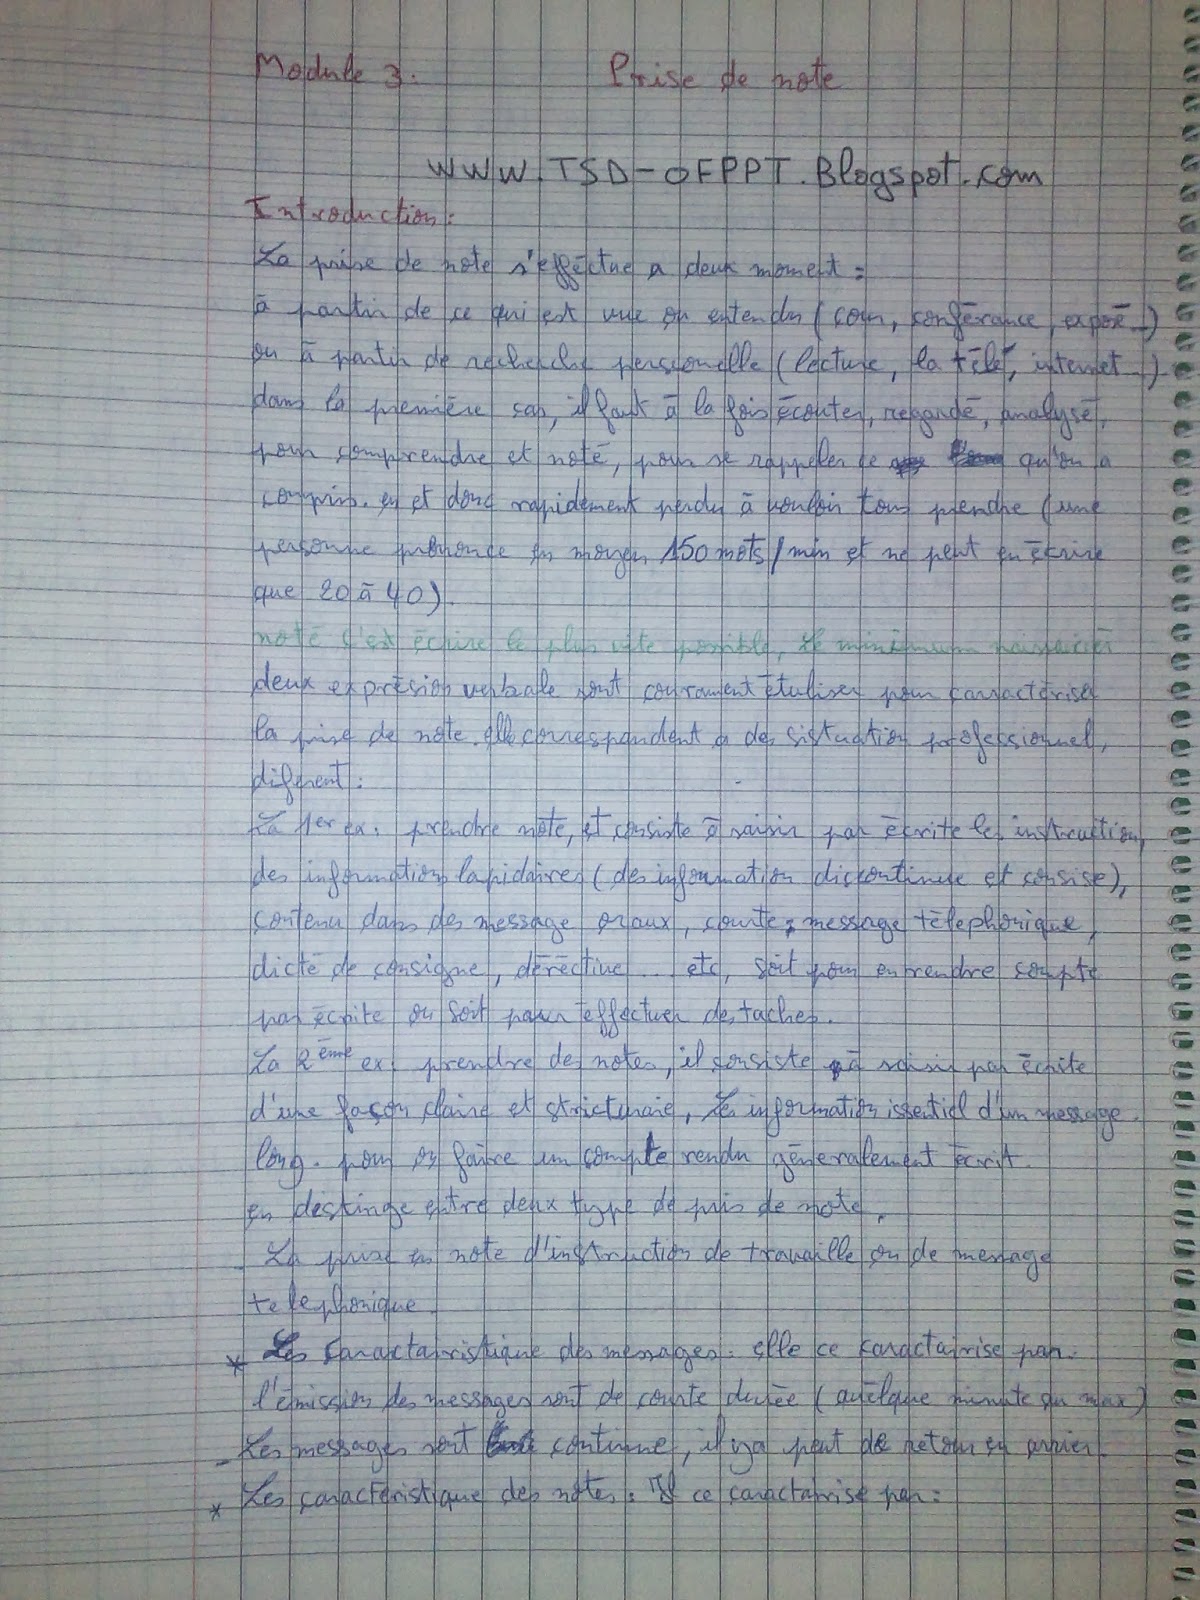 Module 3. Prise de note
WWW.TSD-OFPPT.Blogspot.com
Introduction:
La prise de note s'effectue a deux moment :
à partir de ce qui est vue ou entendu (cour, conférance, exposé...)
ou à partir de recherche personelle (lecture, la télé, internet...)
dans la première cas, il faut à la fois écouter, regardé, analysé,
pour comprendre et noté, pour se rappeler de qu'on a
compris. en et donc rapidement perdu à vouloir tous prendre (une
personne prononce en moyen 150 mots/min et ne peut en écrire
que 20 à 40).
noté c'est écrire le plus vite possible, le minimum
deux expresion verbale sont courament étuliser pour caractérisé
la prise de note. elle correspondent a des sistuation professionnel,
diferent :
La 1er ex. prendre note, et consiste à saisir par écrite les instruction,
des information lapidaires (des information discontinue et consise),
contenu dans des message oraux, courte, message téléphonique,
dicté de consigne, déréctive ... etc, soit pour en rendre compte
par écrite ou soit pour effectuer des taches.
La 2ème ex. prendre des notes, il consiste à saisir par écrite
d'une façon claire et les information issentiel d'un message
long. pour en faire un compte rendu géneralement écrit.
en destinge entre deux type de pris de note.
La prise en note d'instruction de travaille ou de message
telephonique.
* Les caractairistique des messages. elle ce caractairise par.
l'émission des messages sont de courte durée (quelque minute au max)
- Les messages sont continue, il y a peut de retour en arrier.
* Les caractéristique des notes : Il ce caractairise par :